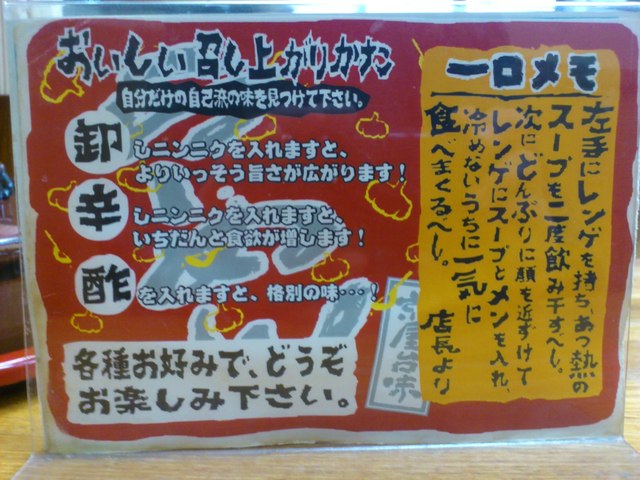 おいしい召し上がりかた
自分だけの自己流の味を見つけて下さい。
卸しニンニクを入れますと、
よりいっそう旨さが広がります!
辛しニンニクを入れますと、
いちだんと食欲が増します!
酢を入れますと、格別の味…!
各種お好みで、どうぞ
お楽しみ下さい。
一口メモ
左手にレンゲを持ち、あつ熱の
スープを二度飲み干すべし。
次にどんぶりに顔を近ずけて
レンゲにスープとメンを入れ、
冷めないうちに一気に
食べまくるべし。
店長より
屋台味